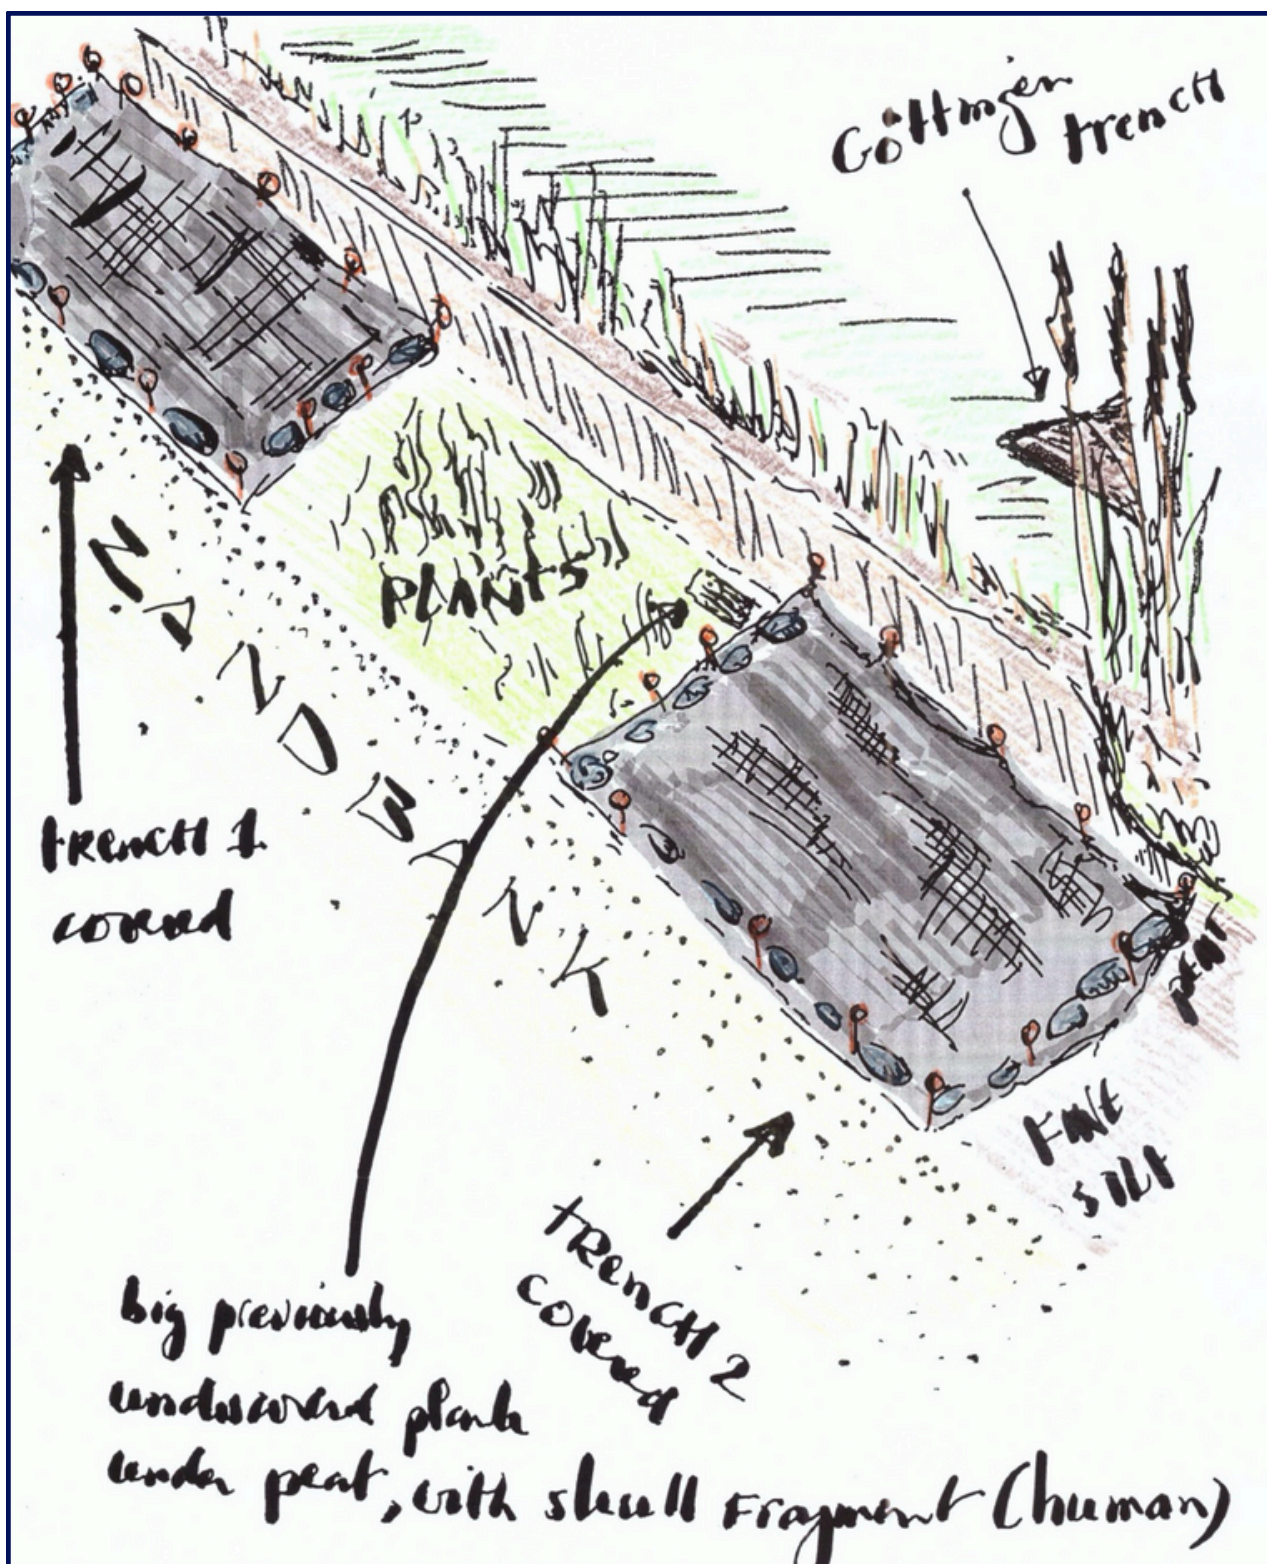 Göttingen
trench
PLANTS
NANOBANK
TRENCH 1
covered
PEAT
FINE
SILT
TRENCH 2
covered
big previously
undiscovered plank
under peat, with skull fragment (human)